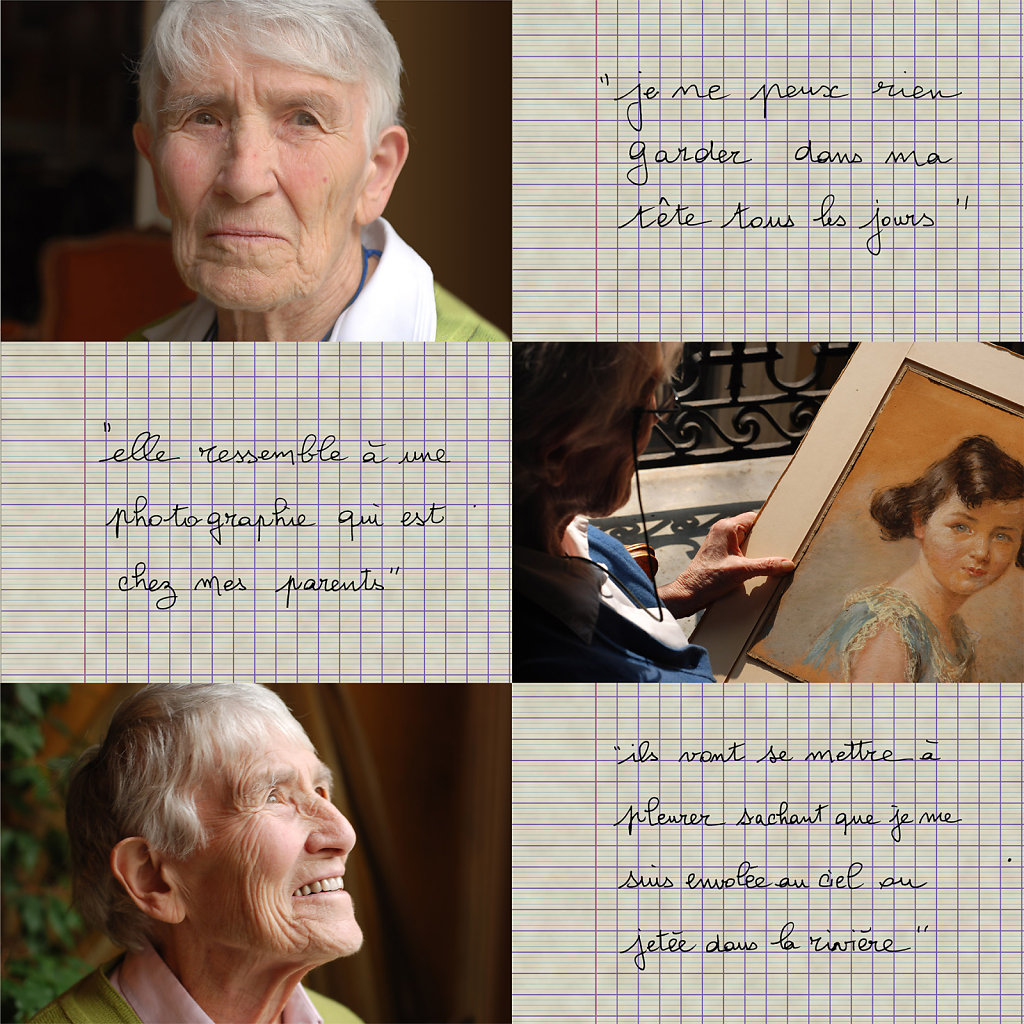 "je ne peux rien
garder dans ma
tête tous les jours"
"elle ressemble à une
photographie qui est
chez mes parents"
"ils vont se mettre à
pleurer sachant que je me
suis envolée au ciel ou
jetée dans la rivière"